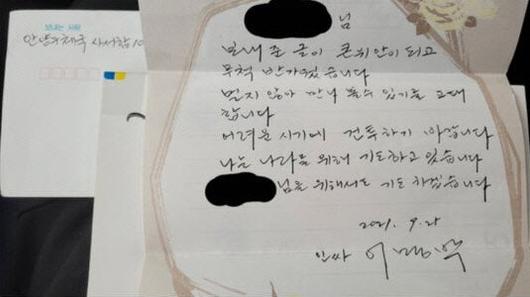 보내는 사람
안양우체국 사서함 10
님
보내 준 글이 큰 위안이 되고
무척 반가웠습니다
멀지 않아 만나 볼수 있기를 고대
합니다
어려운 시기에 건투하기 바랍니다
나는 나라를 위해 기도하고 있습니다
님을 위해서도 기도 하겠습니다
2021. 9. 25
이명박